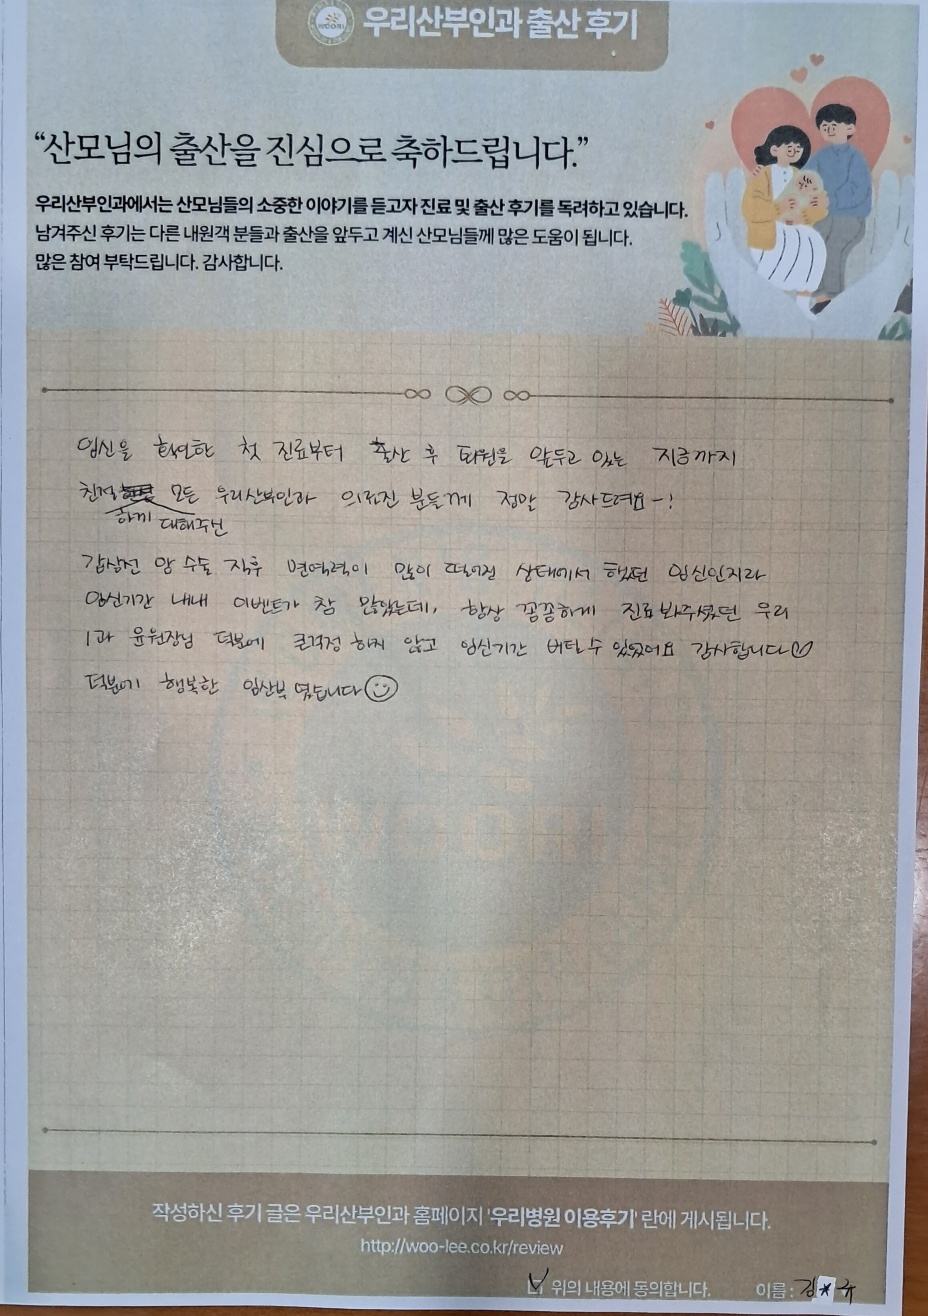 우리산부인과 출산 후기
“산모님의 출산을 진심으로 축하드립니다.”
우리산부인과에서는 산모님들의 소중한 이야기를 듣고자 진료 및 출산 후기를 독려하고 있습니다.
남겨주신 후기는 다른 내원객 분들과 출산을 앞두고 계신 산모님들께 많은 도움이 됩니다.
많은 참여 부탁드립니다. 감사합니다.
임신을 확인한 첫 진료부터 출산 후 퇴원을 앞두고 있는 지금까지
친절 모든 우리산부인과 의료진 분들께 정말 감사드려요-!
하게 대해주신
갑상선 암 수술 직후 면역력이 많이 떨어진 상태에서 했던 임신인지라
임신기간 내내 이벤트가 참 많았는데, 항상 꼼꼼하게 진료봐주셨던 우리
1과 윤원장님 덕분에 큰걱정 하지 않고 임신기간 버틸 수 있었어요 감사합니다
덕분에 행복한 임산부 였습니다
작성하신 후기 글은 우리산부인과 홈페이지 '우리병원 이용후기' 란에 게시됩니다.
http://woo-lee.co.kr/review
위의 내용에 동의합니다. 이름 : 김*규